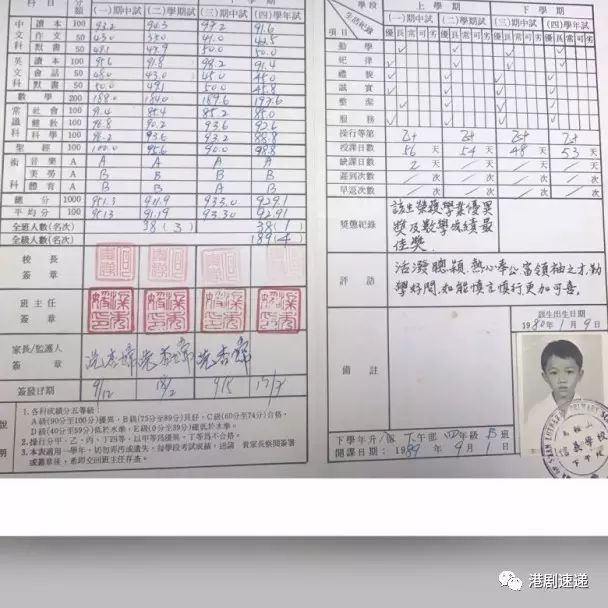 科 目 分額 上 學 期 下 學 期
(一)期中試 (二)學期試 (三)期中試 (四)學年試
中文科 讀本 100 93.2 94.3 99.2 91.6
作文 50 43.0 35.0 41.0 42.5
默書 50 49.1 49.9 50.0 50.0
英文科 讀本 100 95.6 91.8 98.2 91.4
會話 50 48.0 43.0 45.0 45.0
默書 50 50.0 49.1 50.0 45.8
數學 200 188.0 184.0 189.6 197.6
常識科 社會 100 91.4 85.4 85.2 85.0
健教 100 90.2 93.6 92.6
科學 100 93.6 93.2 88.8
聖經 100 100.0 95.6 90.0 98.8
術科 音樂 A A A A A
美勞 A B B B B
體育 A B B A B
總分 1000 951.3 911.9 933.0 929.1
平均分 100 95.13 91.19 93.30 92.91
全班人數(名次) 38 (3) 38 (1)
全級人數(名次) 189 (4)
校長簽章
班主任簽章
家長/監護人簽章
簽發日期 9/12 9/5
說明
1.各科成績分五等級:
A級(90分至100分)優異,B級(75分至89分)良好,C級(60分至74分)合格,
D級(40分至59分)低於水準,E級(0分至39分)遠低於水準。
2.操行分甲、乙、丙、丁四等,以甲等爲優異,丁等爲不合格。
3.本表適用一學年,切勿弄污或遺失,每學段考試成績,送請 貴家長察閱簽署
或蓋章後,希即交回班主任存查。
學段 上 學 期 下 學 期
生活紀錄 (一)期中試 (二)學期試 (三)期中試 (四)學年試
項目 優良常可劣 優良常可劣 優良常可劣 優良常可劣
勤學
紀律
禮貌
誠實
整潔
服務
操行等第 乙+ 乙+ 乙+ 乙+
授課日數 56 天 54 天 48 天 53 天
缺課日數 2 天 天 天 天
遲到次數 次 次 次 次
早退次數 次 次 次 次
獎懲紀錄 該生榮獲學業優異
獎及數學成績最
佳獎。
評語 活潑聰穎,熱心奉公,富領袖之才,勤
學好問,如能慎言慎行更加可喜。
備註
該生出生日期
1980年1月9日
下學年升/留 下午部 四年級 B班
開課日期:1989年9月1日
信義學校
下午校
港剧速递